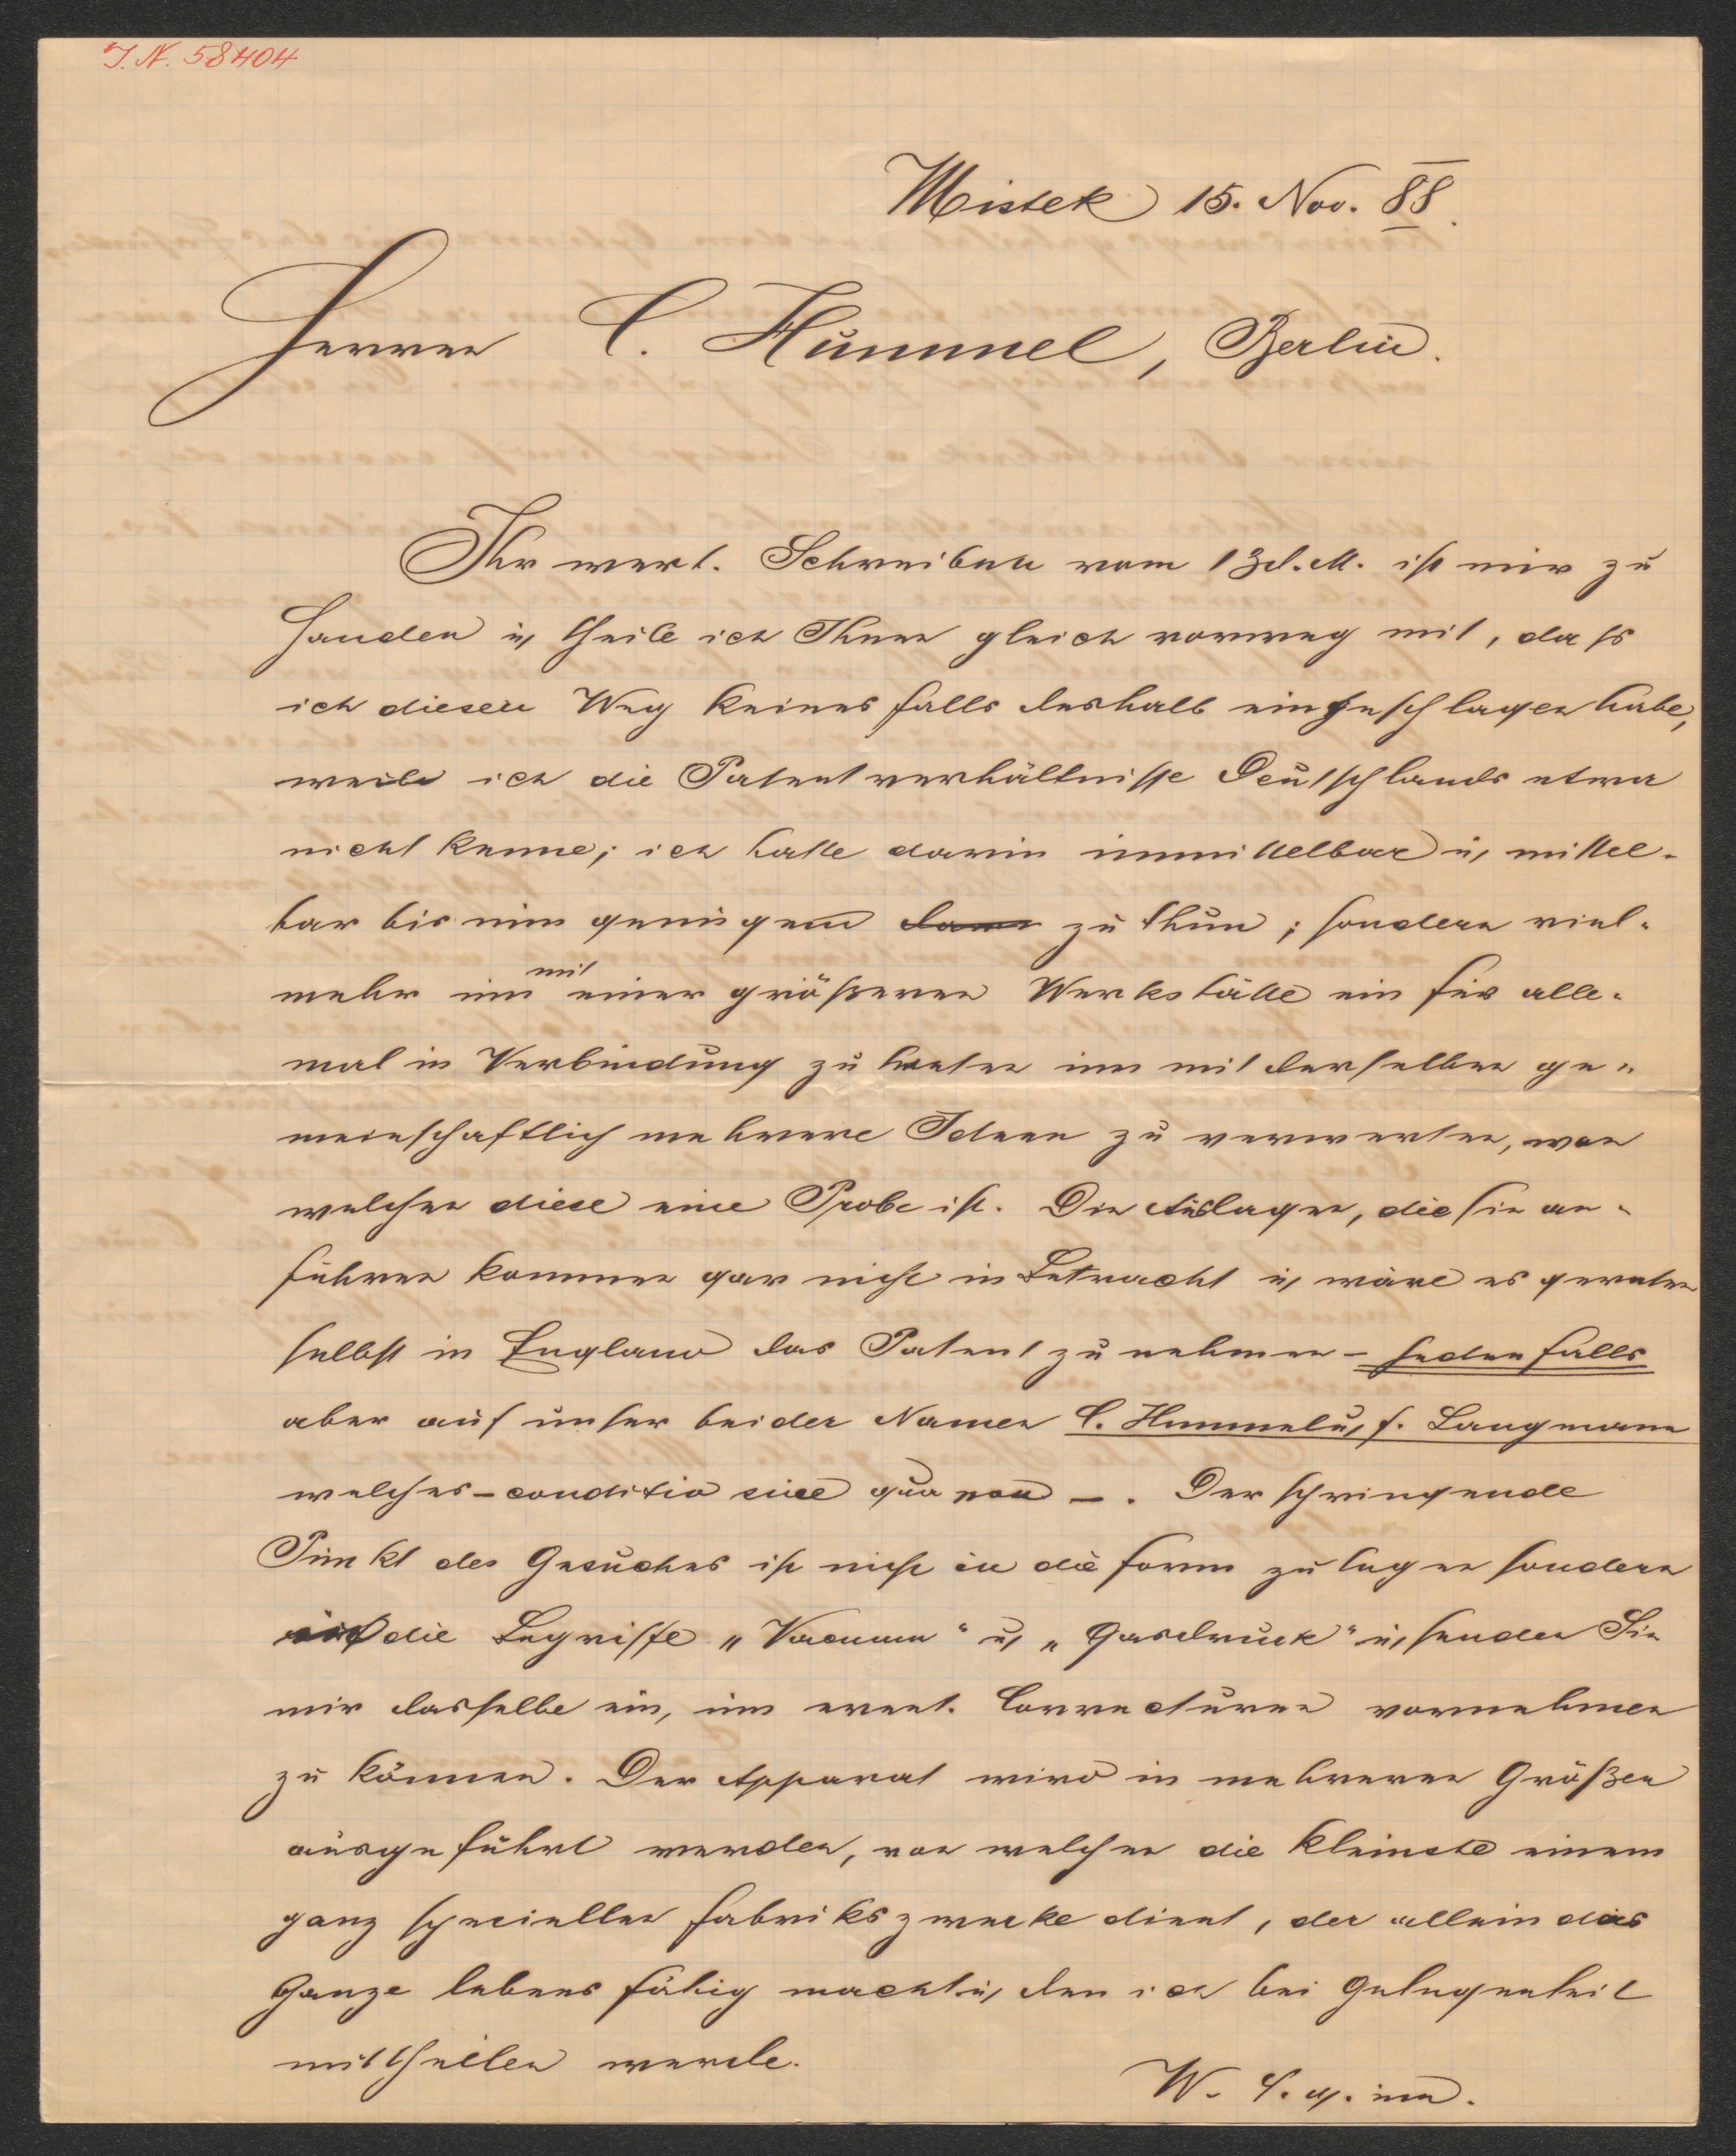 I. N. 58404
Mistek 15. Nov. 88.
Herren C. Hummel, Berlin.
Ihr wert. Schreiben vom 13 d. M. ist mir zu
Handen u, theile ich Ihnen gleich vorweg mit, dass
ich diesen Weg keinesfalls deshalb eingeschlagen habe,
weil ich die Patentverhältnisse Deutschlands etwa
nicht kenne; ich hatte darin unmittelbar u, mittel-
bar bis nun genügend zu thun; sondern viel-
mehr um mit einer größeren Werkstätte ein für alle-
mal in Verbindung zu treten um mit derselben ge-
meinschaftlich mehrere Ideen zu verwerten, von
welchen diese eine Probe ist. Die Auslagen, die sie an-
führen kommen gar nicht in Betracht u, wäre es geraten
selbst in England das Patent zu nehmen – jedenfalls
aber auf unser beider Namen C. Hummel u, f. Langmann
welches – conditio sine qua non –. Der springende
Punkt des Gesuches ist nicht in die Form zu legen sondern
die Begriffe „Vacuum" u, „Gasdruck" u, senden Sie
mir dasselbe ein, um event. Correcturen vornehmen
zu können. Der Apparat wird in mehreren Größen
ausgeführt werden, von welchen die kleinste einem
ganz speciellen Fabrikszwecke dient, der allein das
Ganze lebensfähig macht u, den ich bei Gelegenheit
mittheilen werde.
W. S. g. um.